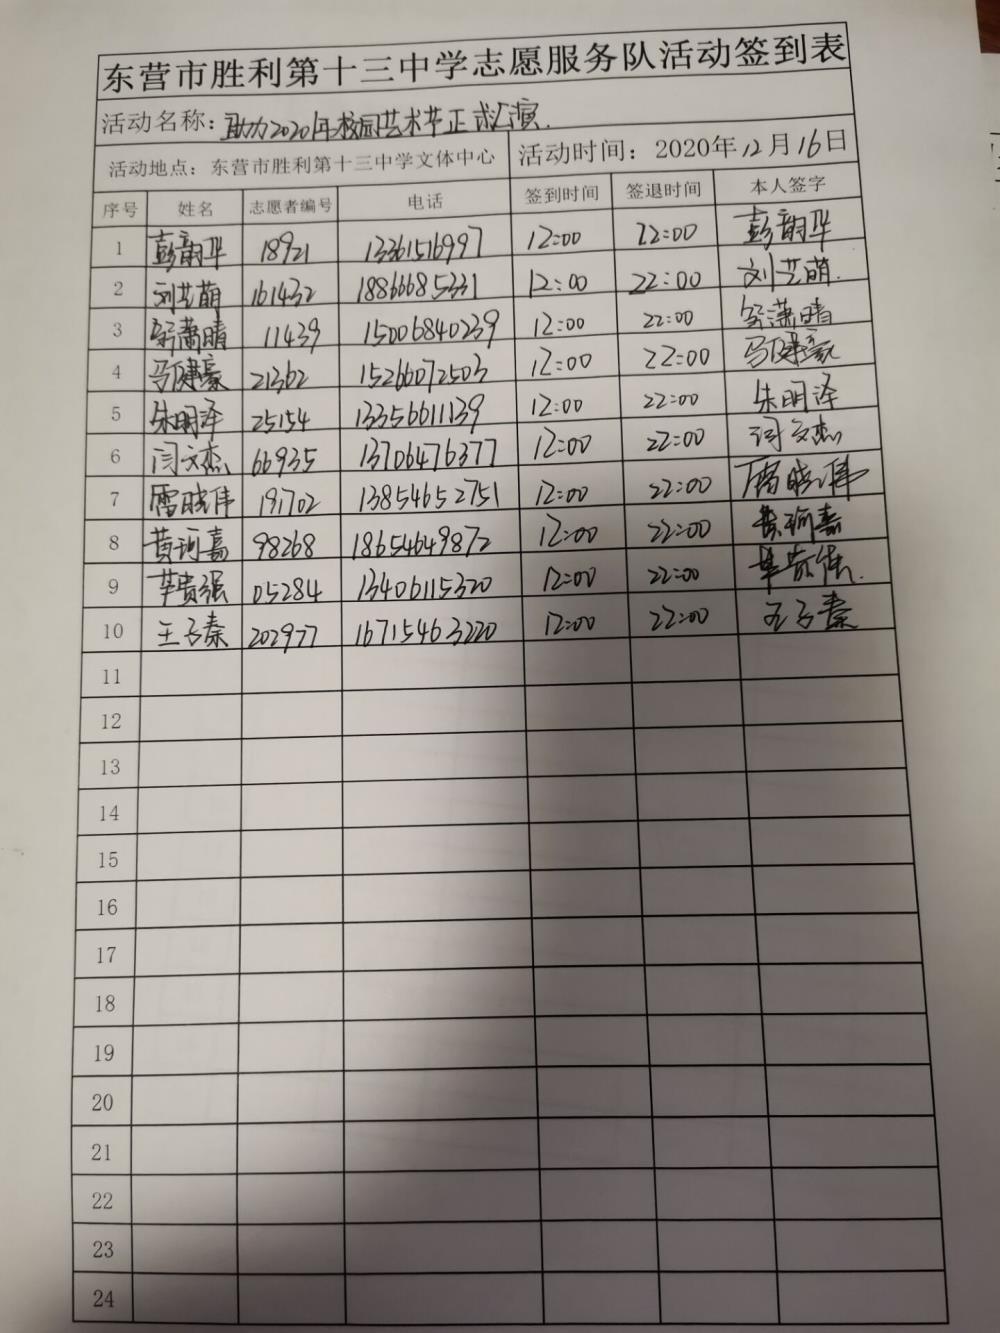 东营市胜利第十三中学志愿服务队活动签到表
活动名称: 助力2021年校园艺术节正式汇演.
活动地点: 东营市胜利第十三中学文体中心 活动时间: 2020年12月16日
序号 姓名 志愿者编号 电话 签到时间 签退时间 本人签字
1 彭韵华 18921 13361516997 12:00 22:00 彭韵华
2 刘芷萌 161432 18866685331 12:00 22:00 刘芷萌.
3 潇晴 11439 15006840239 12:00 22:00 潇晴
4 马健豪 21362 15266072503 12:00 22:00 马健豪
5 朱明泽 25154 13356611139 12:00 22:00 朱明泽
6 闫文杰 66935 13706476377 12:00 22:00 闫文杰
7 雷晓伟 191702 13854652751 12:00 22:00 雷晓伟
8 黄珂嘉 98268 18654649872 12:00 22:00 黄珂嘉
9 05284 13406115320 12:00 22:00
10 王子秦 202977 16715463220 12:00 22:00 王子秦
11
12
13
14
15
16
17
18
19
20
21
22
23
24